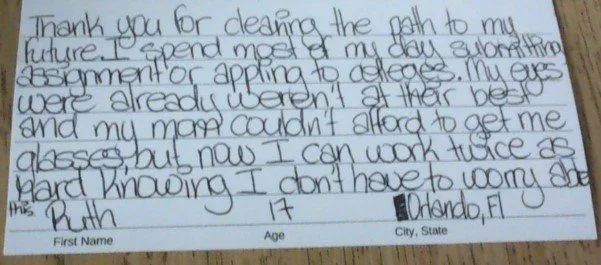 Thank you for clearing the path to my
future. I spend most of my day submitting
assignment or appling to colleges. My eyes
were already weren't at their best
and my mom couldn't afford to get me
glasses, but now I can work twice as
hard knowing I don't have to worry abo
this
Ruth 17 Orlando, Fl
First Name Age City, State